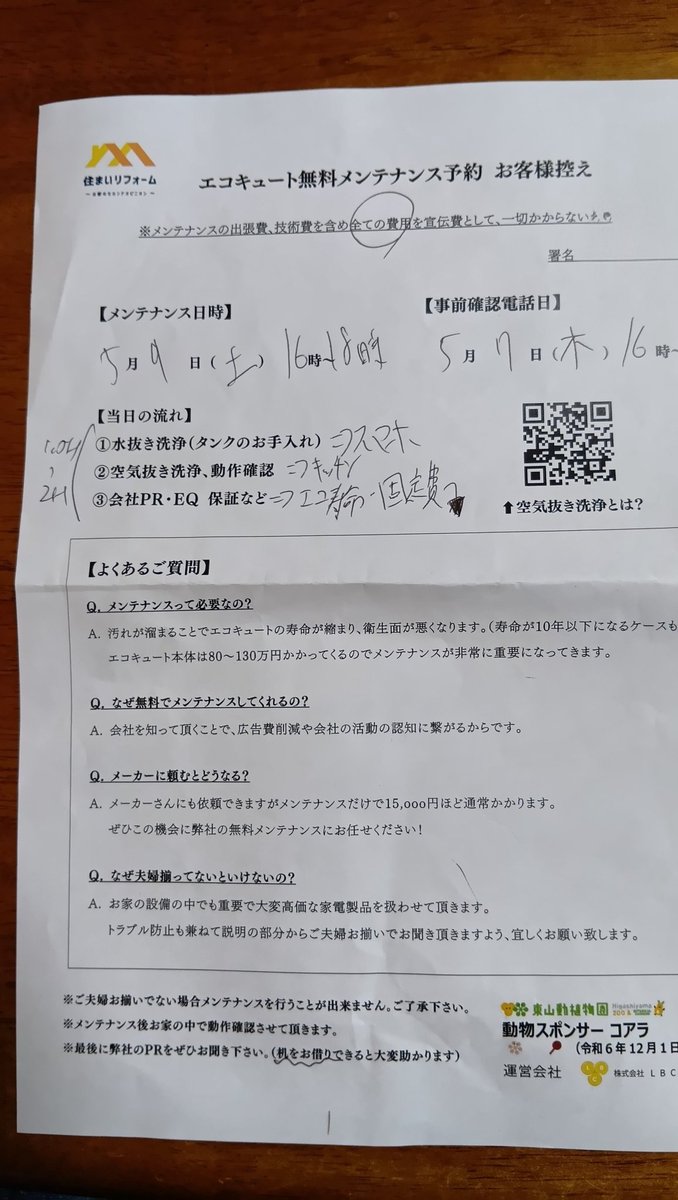 住まいリフォーム
エコキュート無料メンテナンス予約 お客様控え
※メンテナンスの出張費、技術費を含め全ての費用を宣伝費として、一切かからない
署名
【メンテナンス日時】
5月9日(土) 16時~18時
【事前確認電話日】
5月7日(木)16時~
【当日の流れ】
①水抜き洗浄(タンクのお手入れ)⇒スマホ
②空気抜き洗浄、動作確認⇒キッチン
③会社PR・EQ 保証など⇒エコ寿命・固定費
2H
⬆空気抜き洗浄とは?
【よくあるご質問】
Q. メンテナンスって必要なの?
A. 汚れが溜まることでエコキュートの寿命が縮まり、衛生面が悪くなります。(寿命が10年以下になるケースも
エコキュート本体は80〜130万円かかってくるのでメンテナンスが非常に重要になってきます。
Q. なぜ無料でメンテナンスしてくれるの?
A. 会社を知って頂くことで、広告費削減や会社の活動の認知に繋がるからです。
Q. メーカーに頼むとどうなる?
A. メーカーさんにも依頼できますがメンテナンスだけで15,000円ほど通常かかります。
ぜひこの機会に弊社の無料メンテナンスにお任せください!
Q. なぜ夫婦揃ってないといけないの?
A. お家の設備の中でも重要で大変高価な家電製品を扱わせて頂きます。
トラブル防止も兼ねて説明の部分からご夫婦お揃いでお聞き頂きますよう、宜しくお願い致します。
※ご夫婦お揃いでない場合メンテナンスを行うことが出来ません。ご了承下さい。
※メンテナンス後お家の中で動作確認させて頂きます。
※最後に弊社のPRをぜひお聞き下さい。(机をお借りできると大変助かります)
東山動植物園 Higashiyama ZOO &
動物スポンサー コアラ
(令和6年12月1日
運営会社 株式会社 LBC